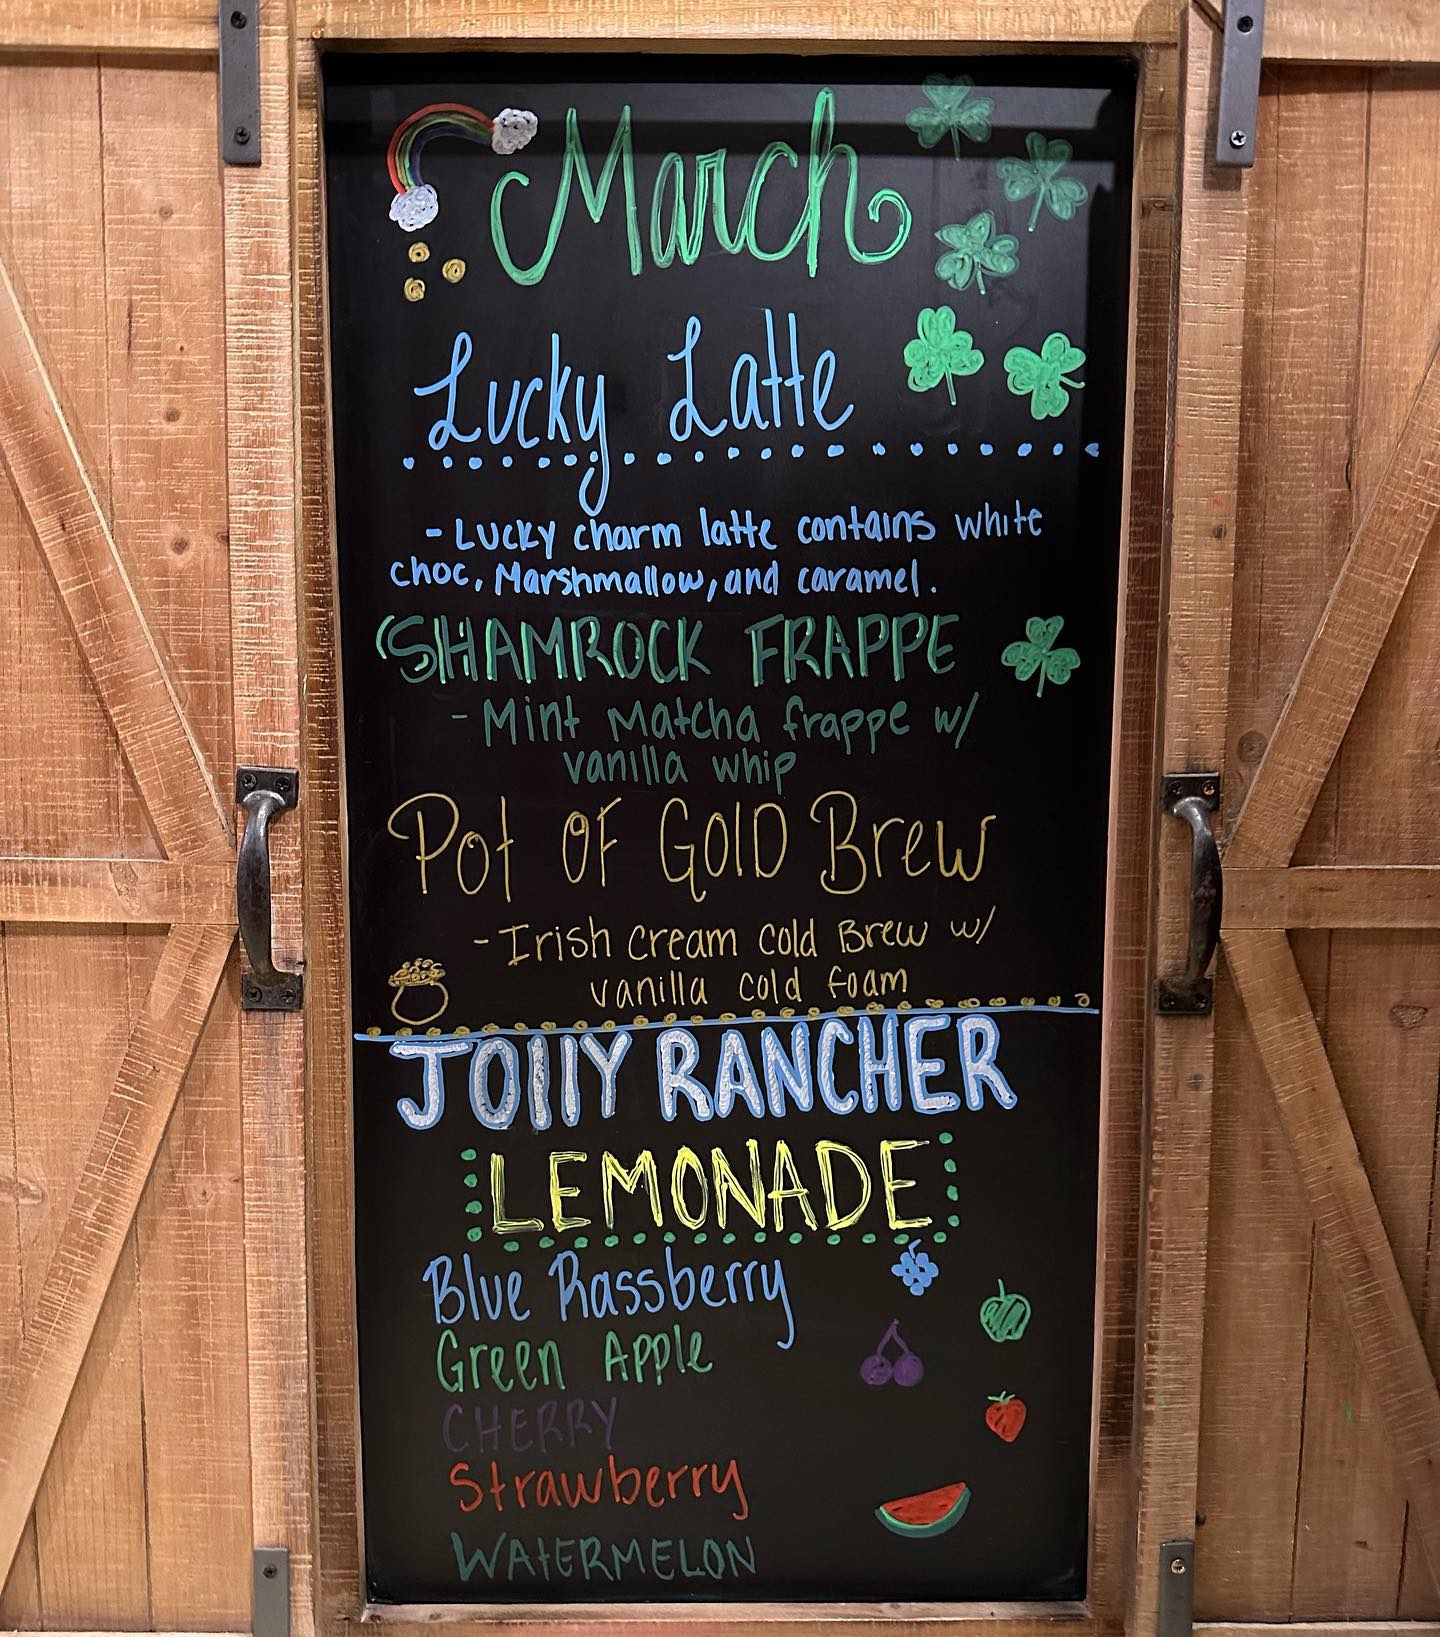 March
Lucky Latte
- Lucky charm latte contains white
choc, Marshmallow, and caramel.
SHAMROCK FRAPPE
- Mint Matcha frappe w/
vanilla whip
Pot OF GOlD Brew
- Irish cream cold Brew w/
vanilla cold foam
JOllY RANCHER
LEMONADE
Blue Rassberry
Green Apple
CHERRY
Strawberry
WATERMELON